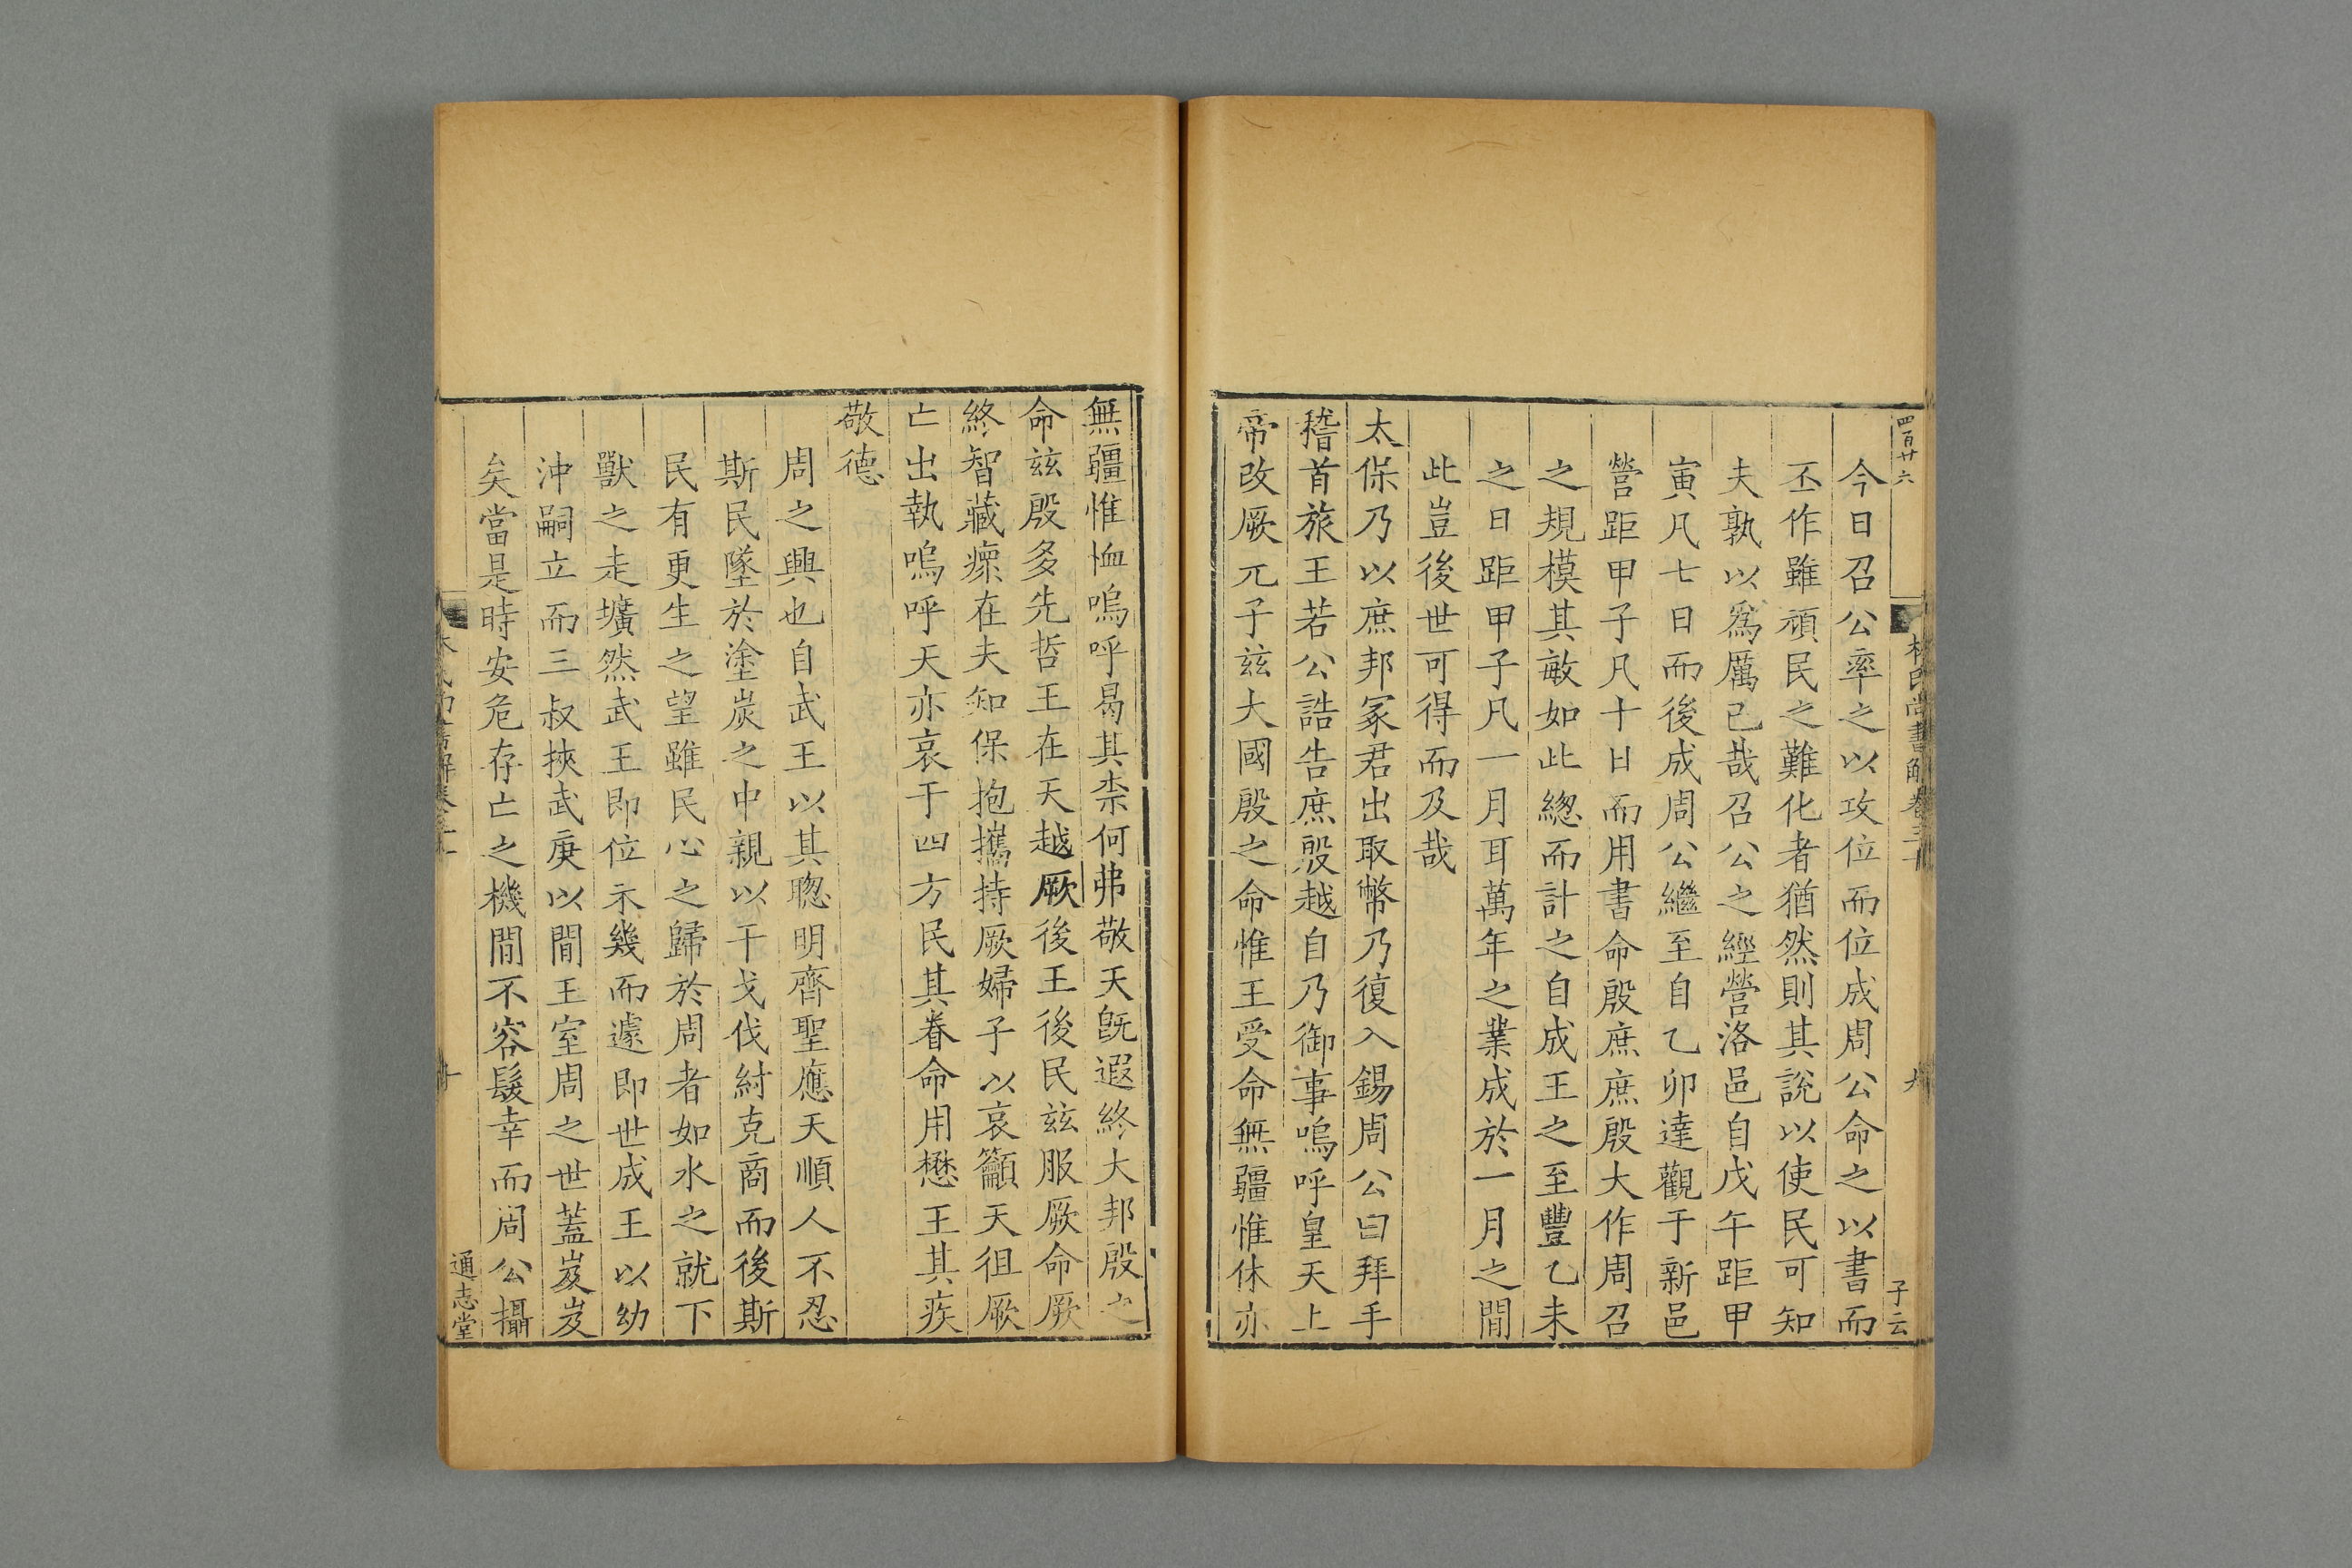 四百廿六
林氏尚書解卷三十
九
子云
今日召公率之以攻位而位成周公命之以書而
丕作雖頑民之難化者猶然則其說以使民可知
夫孰以爲厲已哉召公之經營洛邑自戊午距甲
寅凡七日而後成周公繼至自乙卯達觀于新邑
營距甲子凡十日而用書命殷庶庶殷大作周召
之規模其敏如此緫而計之自成王之至豐乙未
之日距甲子凡一月耳萬年之業成於一月之閒
此豈後世可得而及哉
太保乃以庶邦冢君出取幣乃復入錫周公曰拜手
稽首旅王若公誥告庶殷越自乃御事嗚呼皇天上
帝改厥元子兹大國殷之命惟王受命無疆惟休亦
無疆惟恤嗚呼曷其柰何弗敬天旣遐終大邦殷之
命兹殷多先哲王在天越厥後王後民兹服厥命厥
終智藏瘝在夫知保抱攜持厥婦子以哀籲天徂厥
亡出執嗚呼天亦哀于四方民其眷命用懋王其疾
敬德
周之興也自武王以其聰明齊聖應天順人不忍
斯民墜於塗炭之中親以干戈伐紂克商而後斯
民有更生之望雖民心之歸於周者如水之就下
獸之走壙然武王即位未幾而遽即世成王以幼
沖嗣立而三叔挾武庚以閒王室周之世蓋岌岌
矣當是時安危存亡之機閒不容髮幸而周公攝
十
通志堂